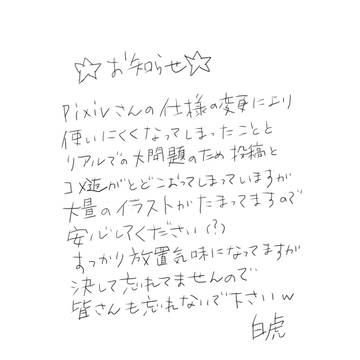 ☆お知らせ☆
Pixivさんの仕様の変更により
使いにくくなってしまったことと
リアルでの大問題のため投稿と
コメ返がとどこおってしまっていますが
大量のイラストがたまってますので
安心してください(?)
すっかり放置気味になってますが
決して忘れてませんので
皆さんも忘れないで下さいw
白虎